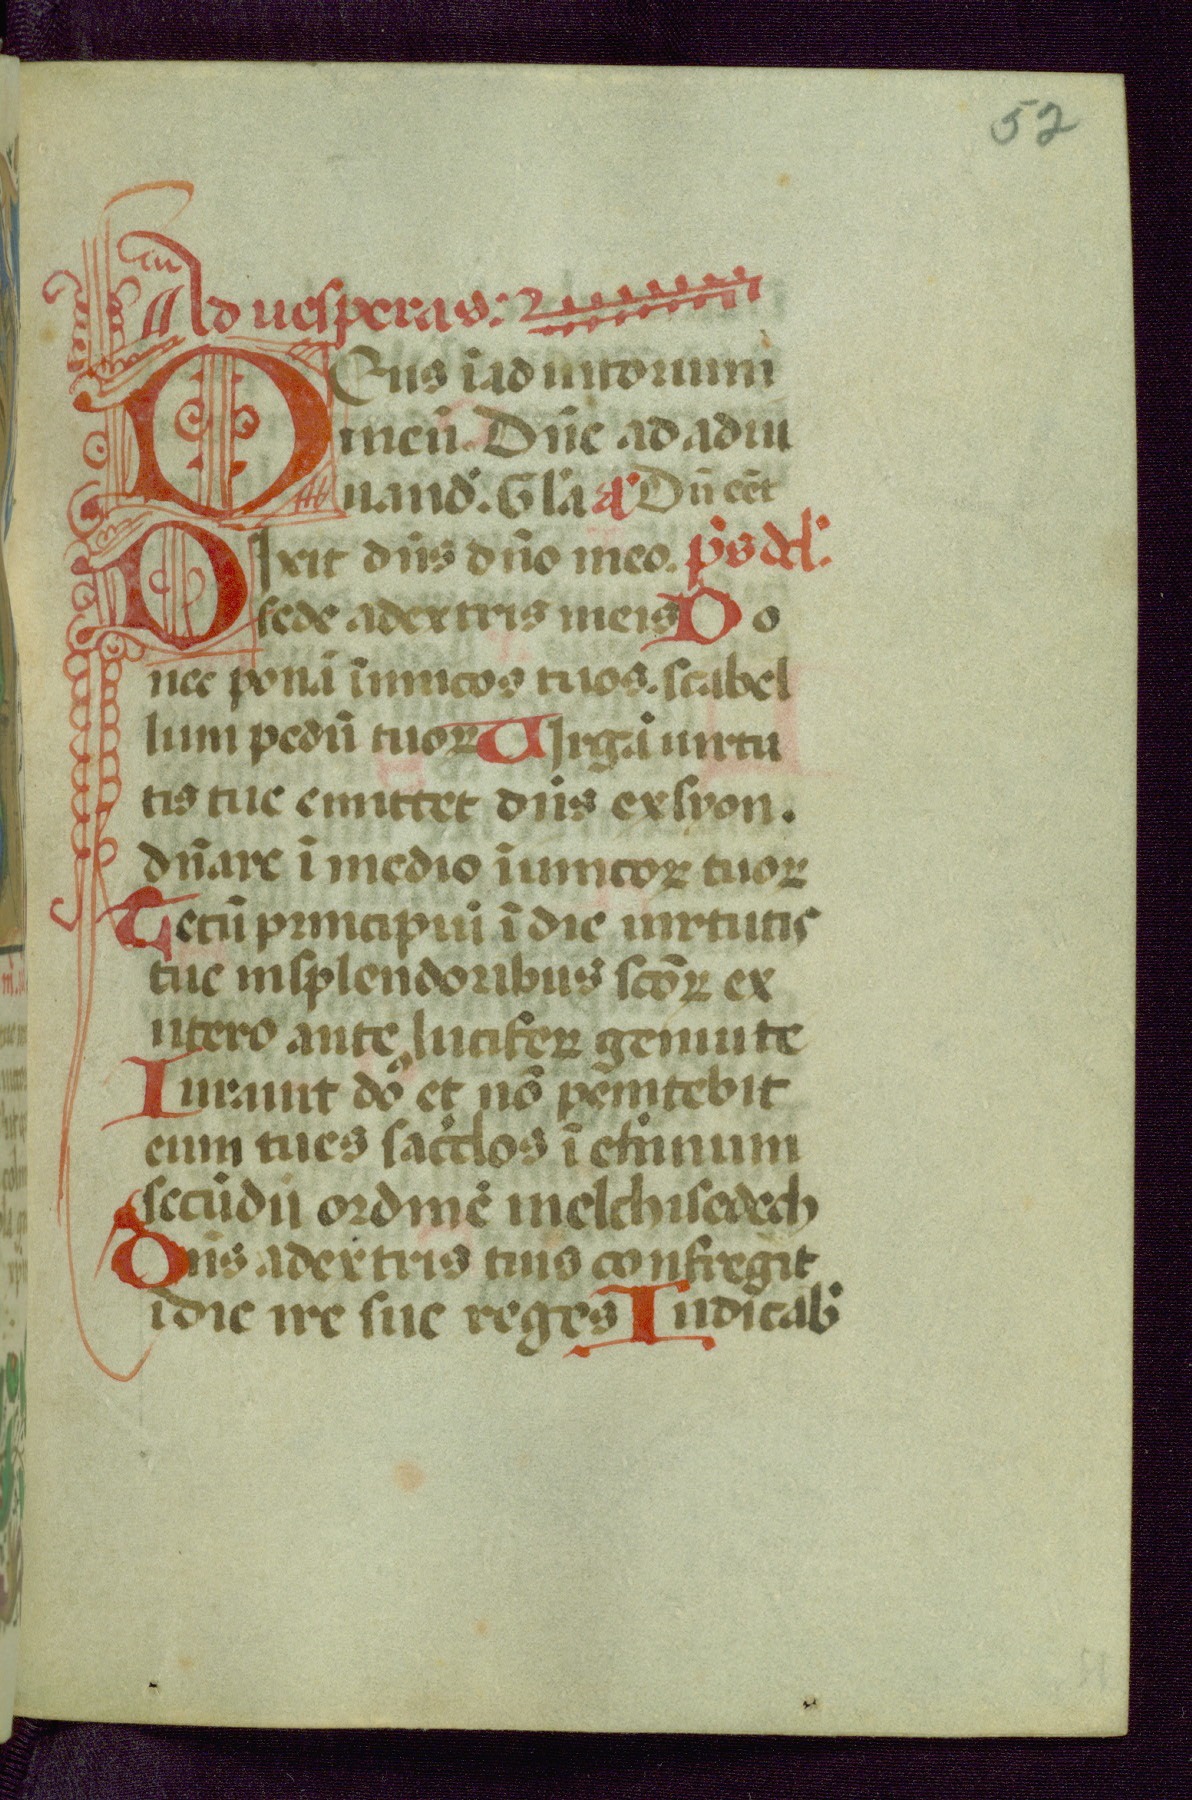 52
Ad uesperas:
DEus ī adiutorium
meū. Dn̄e ad adiu
uand. Gl̄a ā Dū eēt
DIxit dn̄s dn̄o meo. p̄s dd.
sede adextris meis Do
nec ponā īimicos tuos. scabel
lum pedū tuoꝝ UIrgā uirtu
tis tue emittet dn̄s exsyon.
dn̄are ī medio īimicoꝝ tuoꝝ
Tecū principiū ī die uirtutis
tue insplendoribus scōꝝ ex
utero ante luciferꝝ genuite
Iurauit dō et nō pēnitebit
eum tues sac̄dos ī et̄rnum
secūdū ordinē melchisedech
Dn̄s adextris tuis confregit
idie ire sue reges Iudicab̄